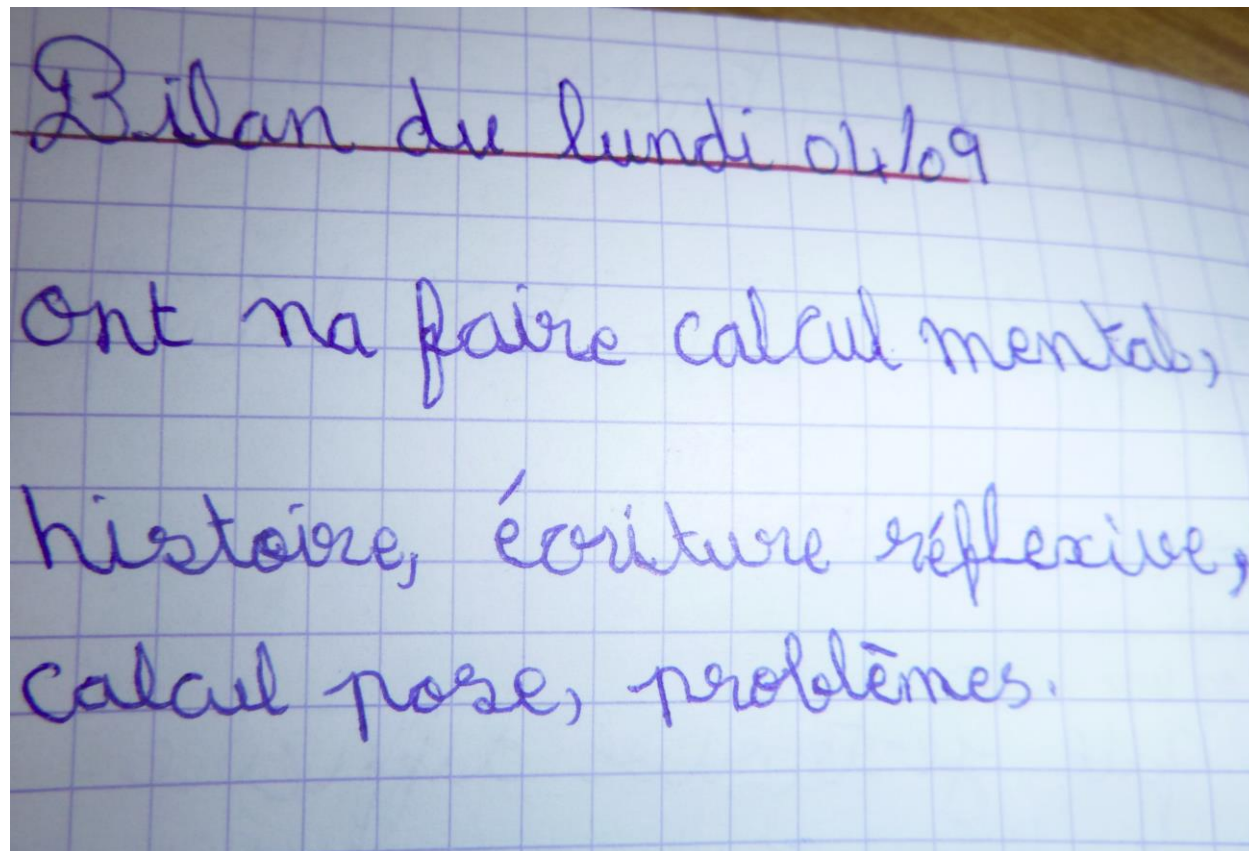 Bilan du lundi 04/09
ont na faire calcul mental,
histoire, écriture réflexive,
calcul pose, problèmes.